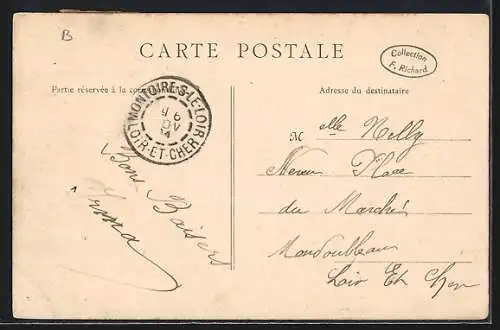 B
CARTE POSTALE
Collection
F. Richard
Partie réservée à la
Adresse du destinataire
MONTOIRE-S-LE-LOIR
LOIR-ET-CHER
Melle Nelly
Place
du Marché
Mondoubleau
Loir Et Cher
Bons Baisers
Irma